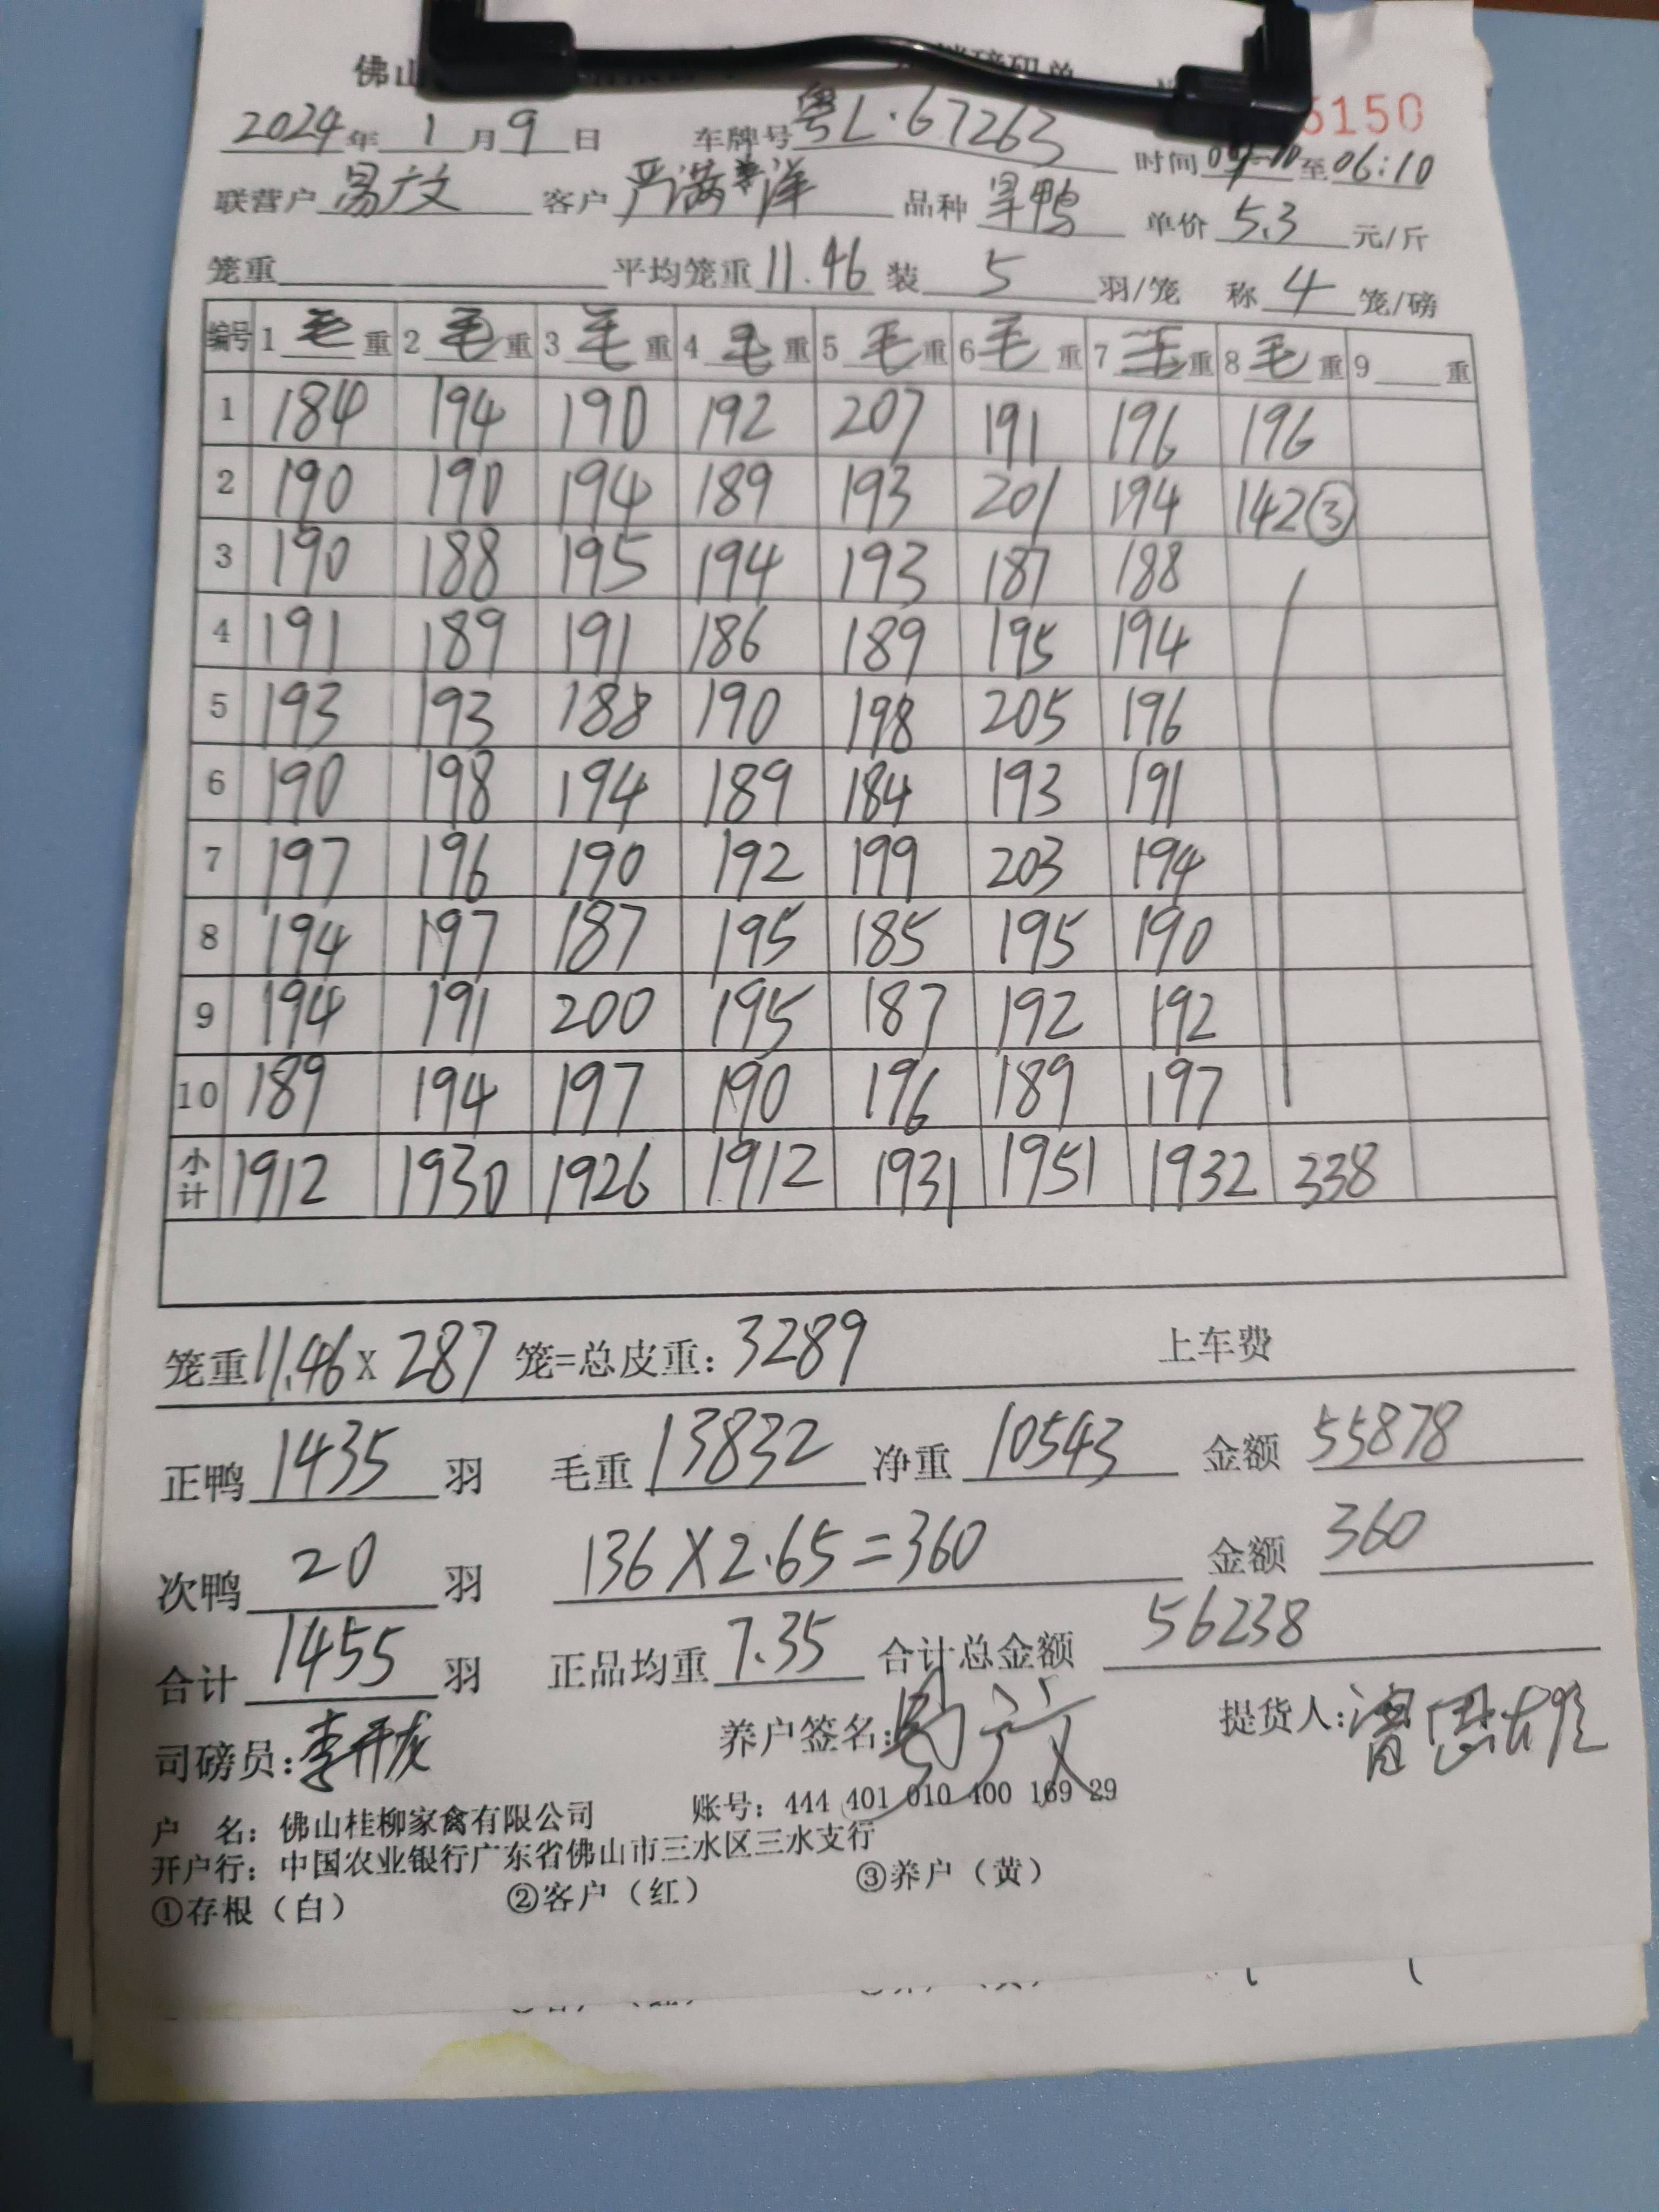 佛山 销磅码单 5150
2024年 1月9日 车牌号 粤L·67263 时间 至06:10
联营户 易广文 客户 严满洋 品种 旱鸭 单价 5.3 元/斤
笼重 平均笼重 11.46 装 5 羽/笼 称 4 笼/磅
编号 1 毛 重 2 毛 重 3 毛 重 4 毛 重 5 毛 重 6 毛 重 7 毛 重 8 毛 重 9 重
1 184 194 190 192 207 191 196 196
2 190 190 194 189 193 201 194 142③
3 190 188 195 194 193 187 188
4 191 189 191 186 189 195 194
5 193 193 188 190 198 205 196
6 190 198 194 189 184 193 191
7 197 196 190 192 199 203 194
8 194 197 187 195 185 195 190
9 194 191 200 195 187 192 192
10 189 194 197 190 196 189 197
小计 1912 1930 1926 1912 1931 1951 1932 338
笼重 11.46 X 287 笼=总皮重: 3289 上车费
正鸭 1435 羽 毛重 13832 净重 10543 金额 55878
次鸭 20 羽 136 X 2.65 = 360 金额 360
合计 1455 羽 正品均重 7.35 合计总金额 56238
司磅员: 李开友 养户签名: 易广文 提货人:
户 名: 佛山桂柳家禽有限公司 账号: 444 401 010 400 169 29
开户行: 中国农业银行广东省佛山市三水区三水支行
①存根（白） ②客户（红） ③养户（黄）